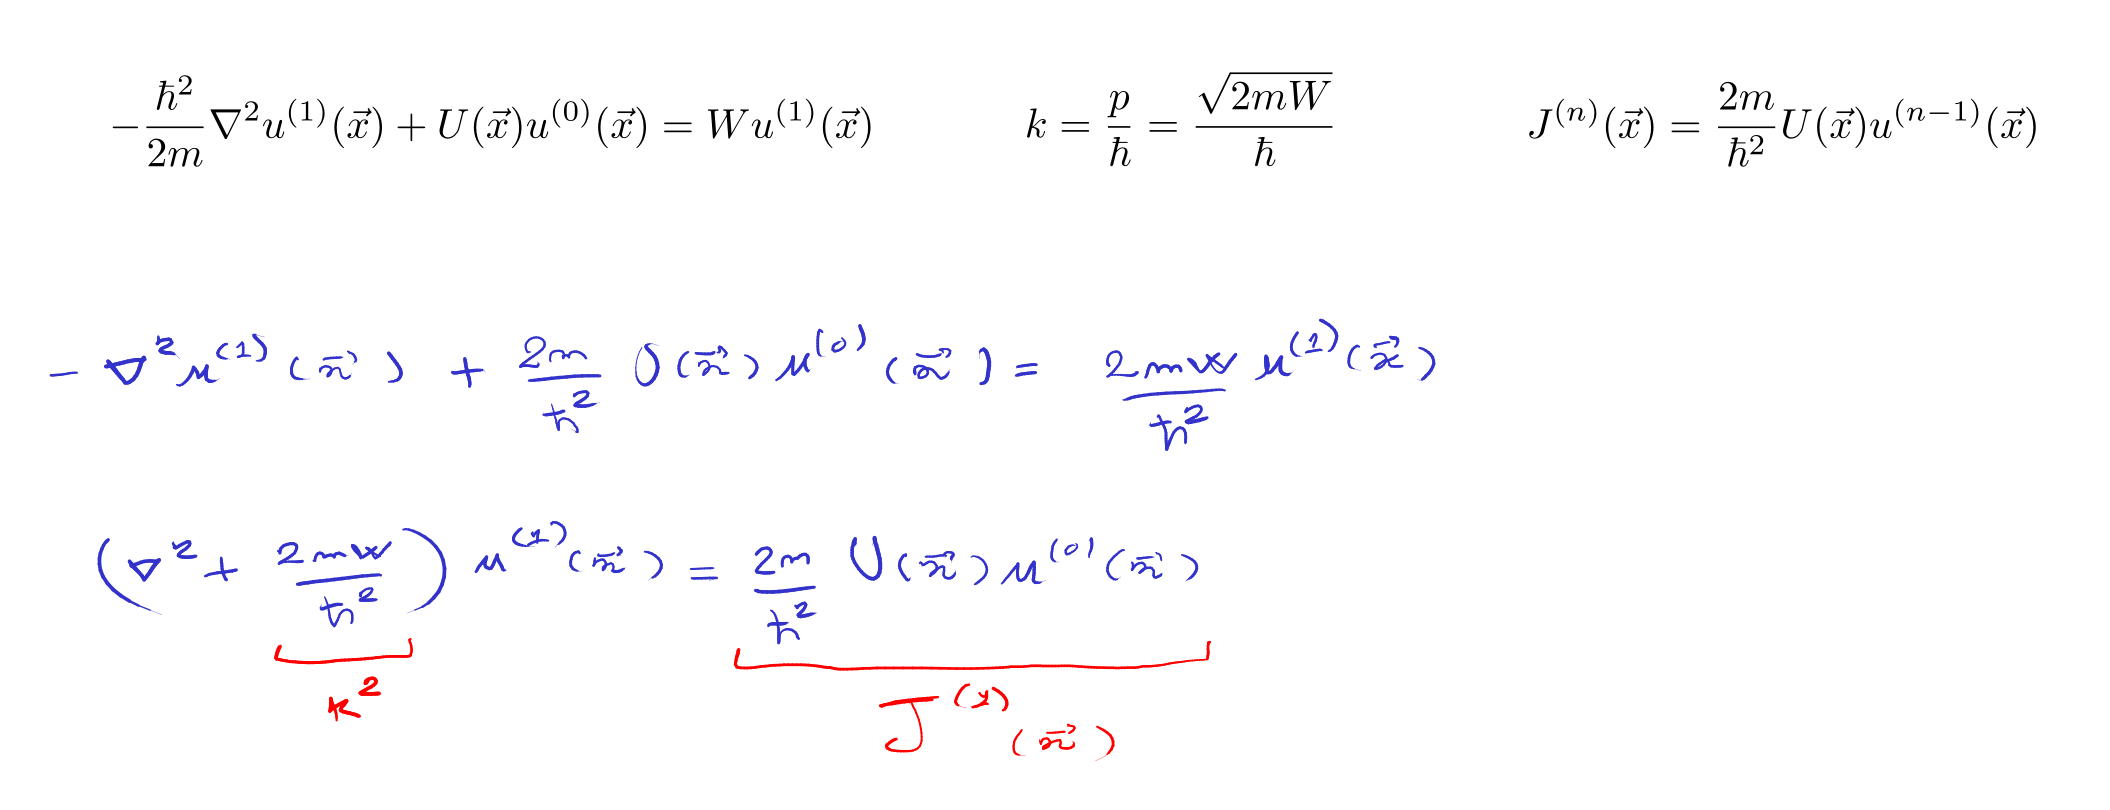 $-\frac{\hbar^2}{2m}\nabla^2 u^{(1)}(\vec{x}) + U(\vec{x})u^{(0)}(\vec{x}) = Wu^{(1)}(\vec{x})$ $k = \frac{p}{\hbar} = \frac{\sqrt{2mW}}{\hbar}$ $J^{(n)}(\vec{x}) = \frac{2m}{\hbar^2}U(\vec{x})u^{(n-1)}(\vec{x})$
$-\nabla^2 u^{(1)}(\vec{x}) + \frac{2m}{\hbar^2} U(\vec{x}) u^{(0)}(\vec{x}) = \frac{2mW}{\hbar^2} u^{(1)}(\vec{x})$
$\left(\nabla^2 + \frac{2mW}{\hbar^2}\right) u^{(1)}(\vec{x}) = \frac{2m}{\hbar^2} U(\vec{x}) u^{(0)}(\vec{x})$
$k^2$ $J^{(1)}(\vec{x})$